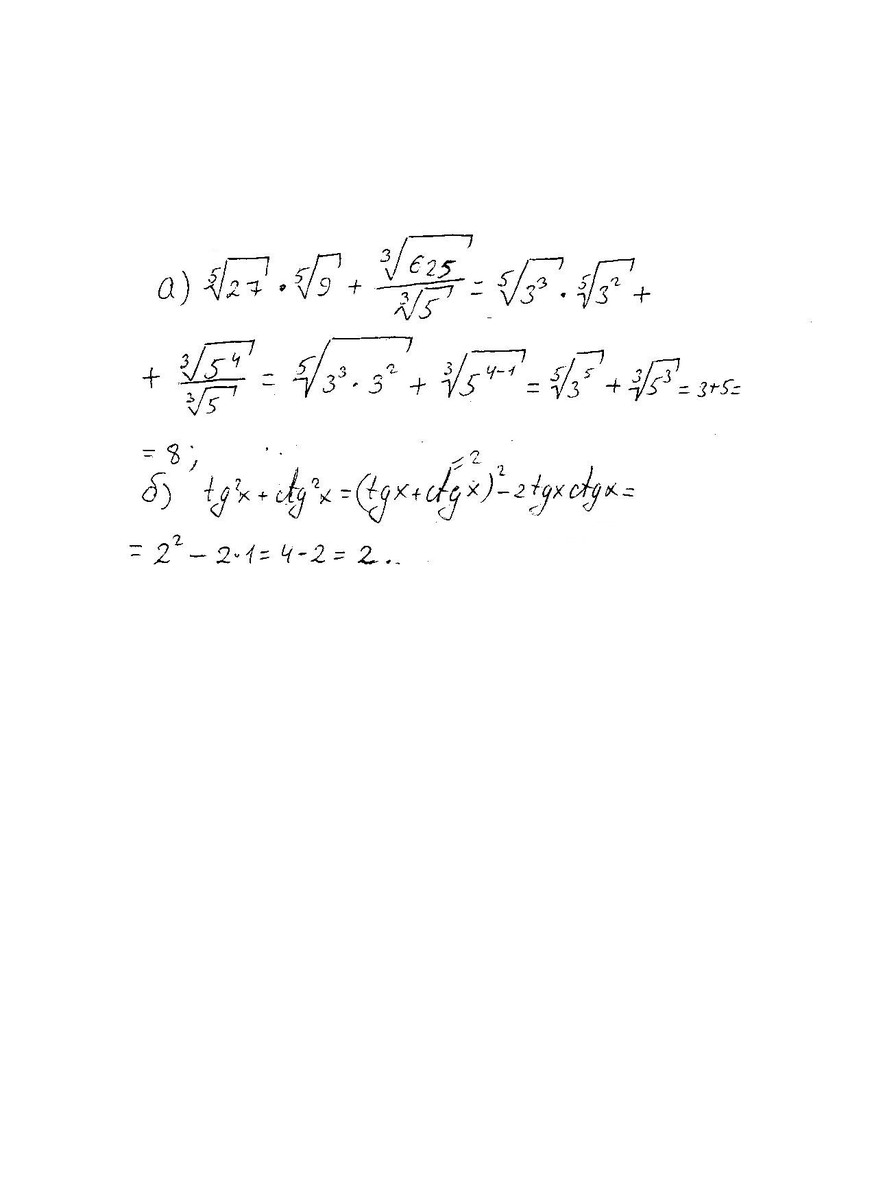 а) ⁵√27 · ⁵√9 + ³√625 / ³√5 = ⁵√3³ · ⁵√3² +
+ ³√5⁴ / ³√5 = ⁵√(3³ · 3²) + ³√5⁴⁻¹ = ⁵√3⁵ + ³√5³ = 3+5=
= 8;
= 2
б) tg²x + ctg²x = (tgx + ctgx)² - 2tgx ctgx =
= 2² - 2·1 = 4 - 2 = 2.